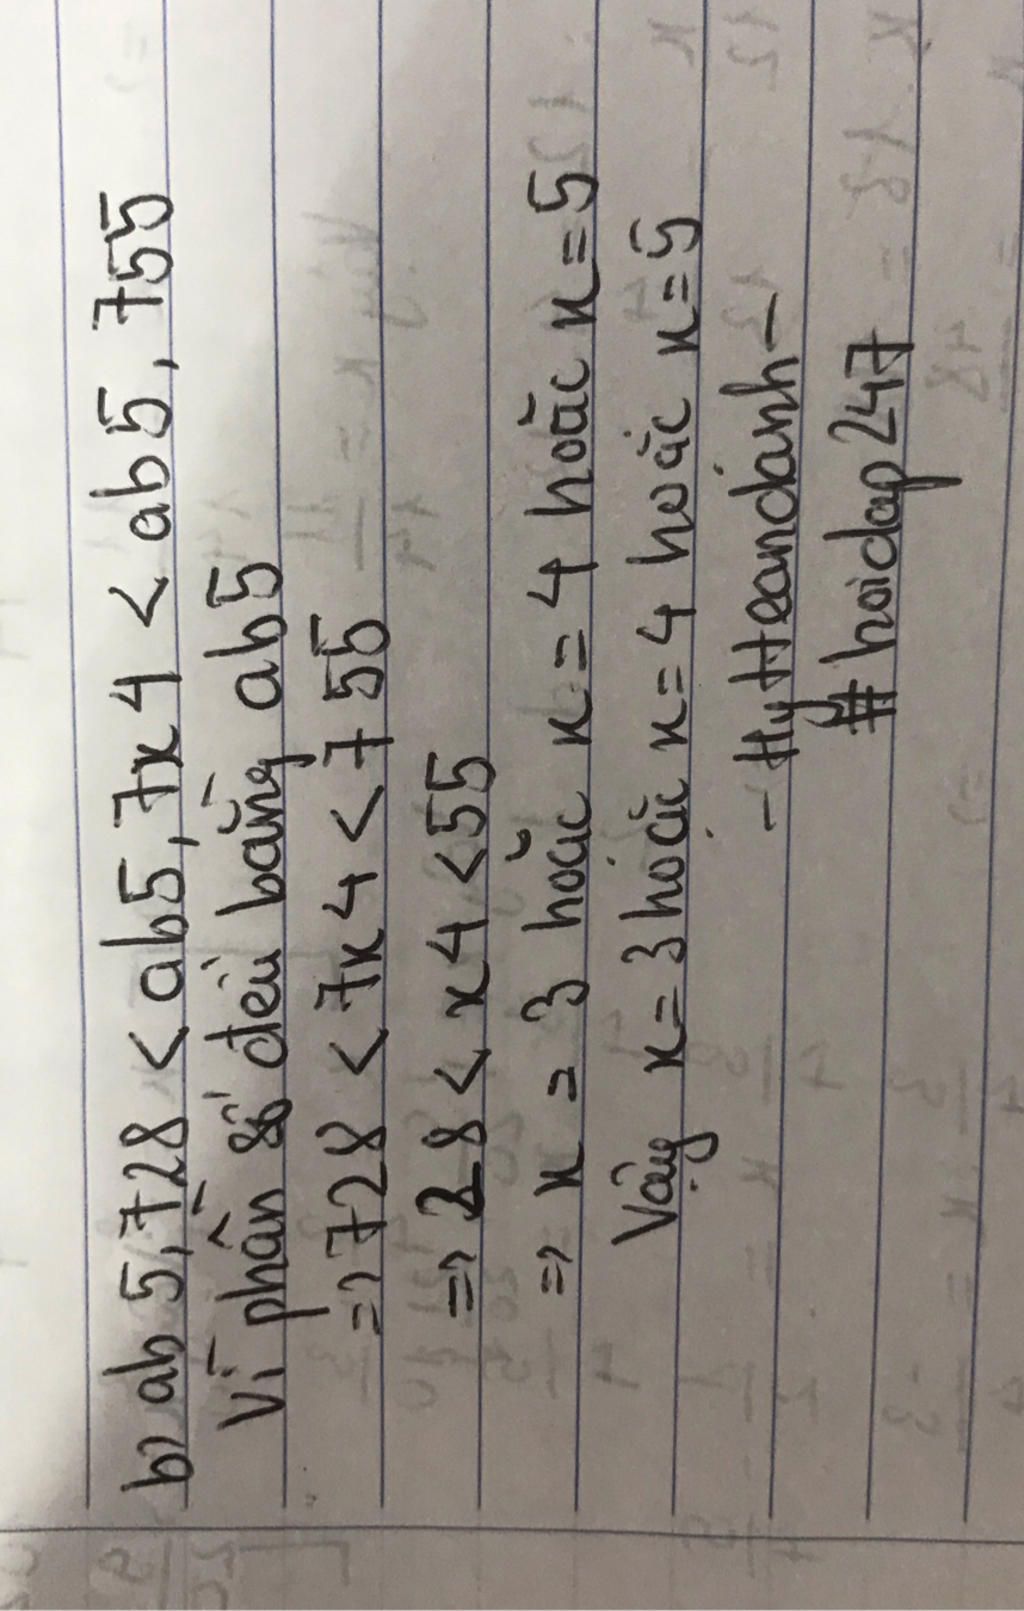 b, ab5,728 < ab5,7x4 < ab5,755
Vì phần số đều bằng ab5
=> 728 < 7x4 < 755
=> 28 < x4 < 55
=> x = 3 hoặc x = 4 hoặc x = 5
Vậy x = 3 hoặc x = 4 hoặc x = 5
- HyHeandanh -
# hoidap247